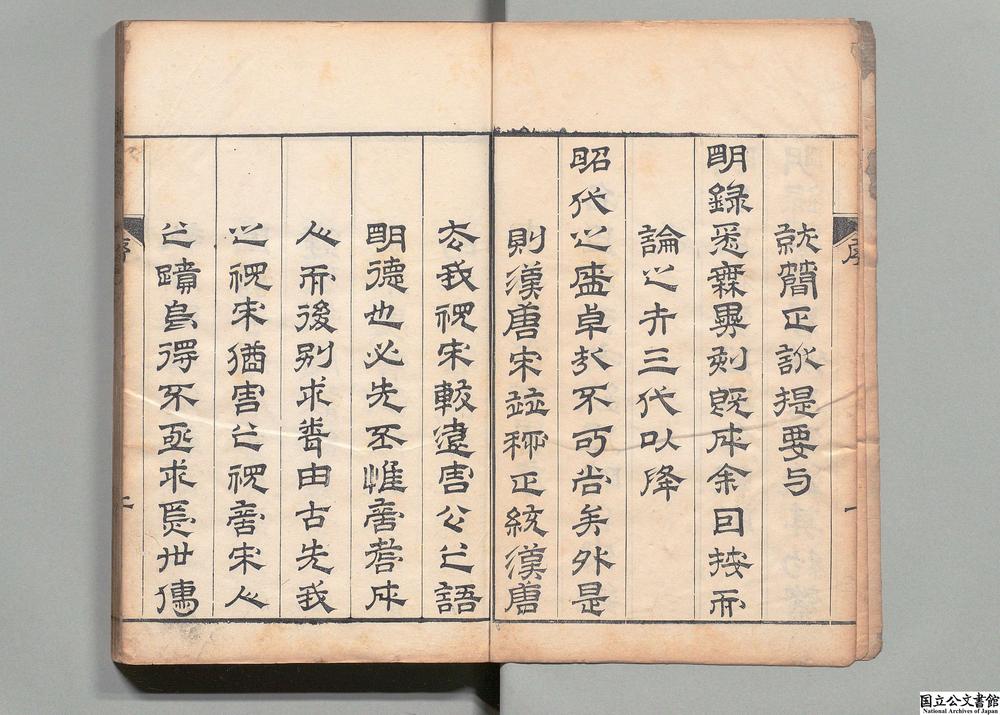 就簡正訛提要与
明錄悉畢刻既成余因按而
論之三代以降
昭代之盛卓乎不可尚矣外是
則漢唐宋竝稱正統漢唐
去我視宋較遠周公之語
明德也必先丕惟商耇成
人而後別求聞由古先我
之視宋猶周之視商宋人
之蹟烏得不亟求焉世傳
序
一
序
二
国立公文書館
National Archives of Japan